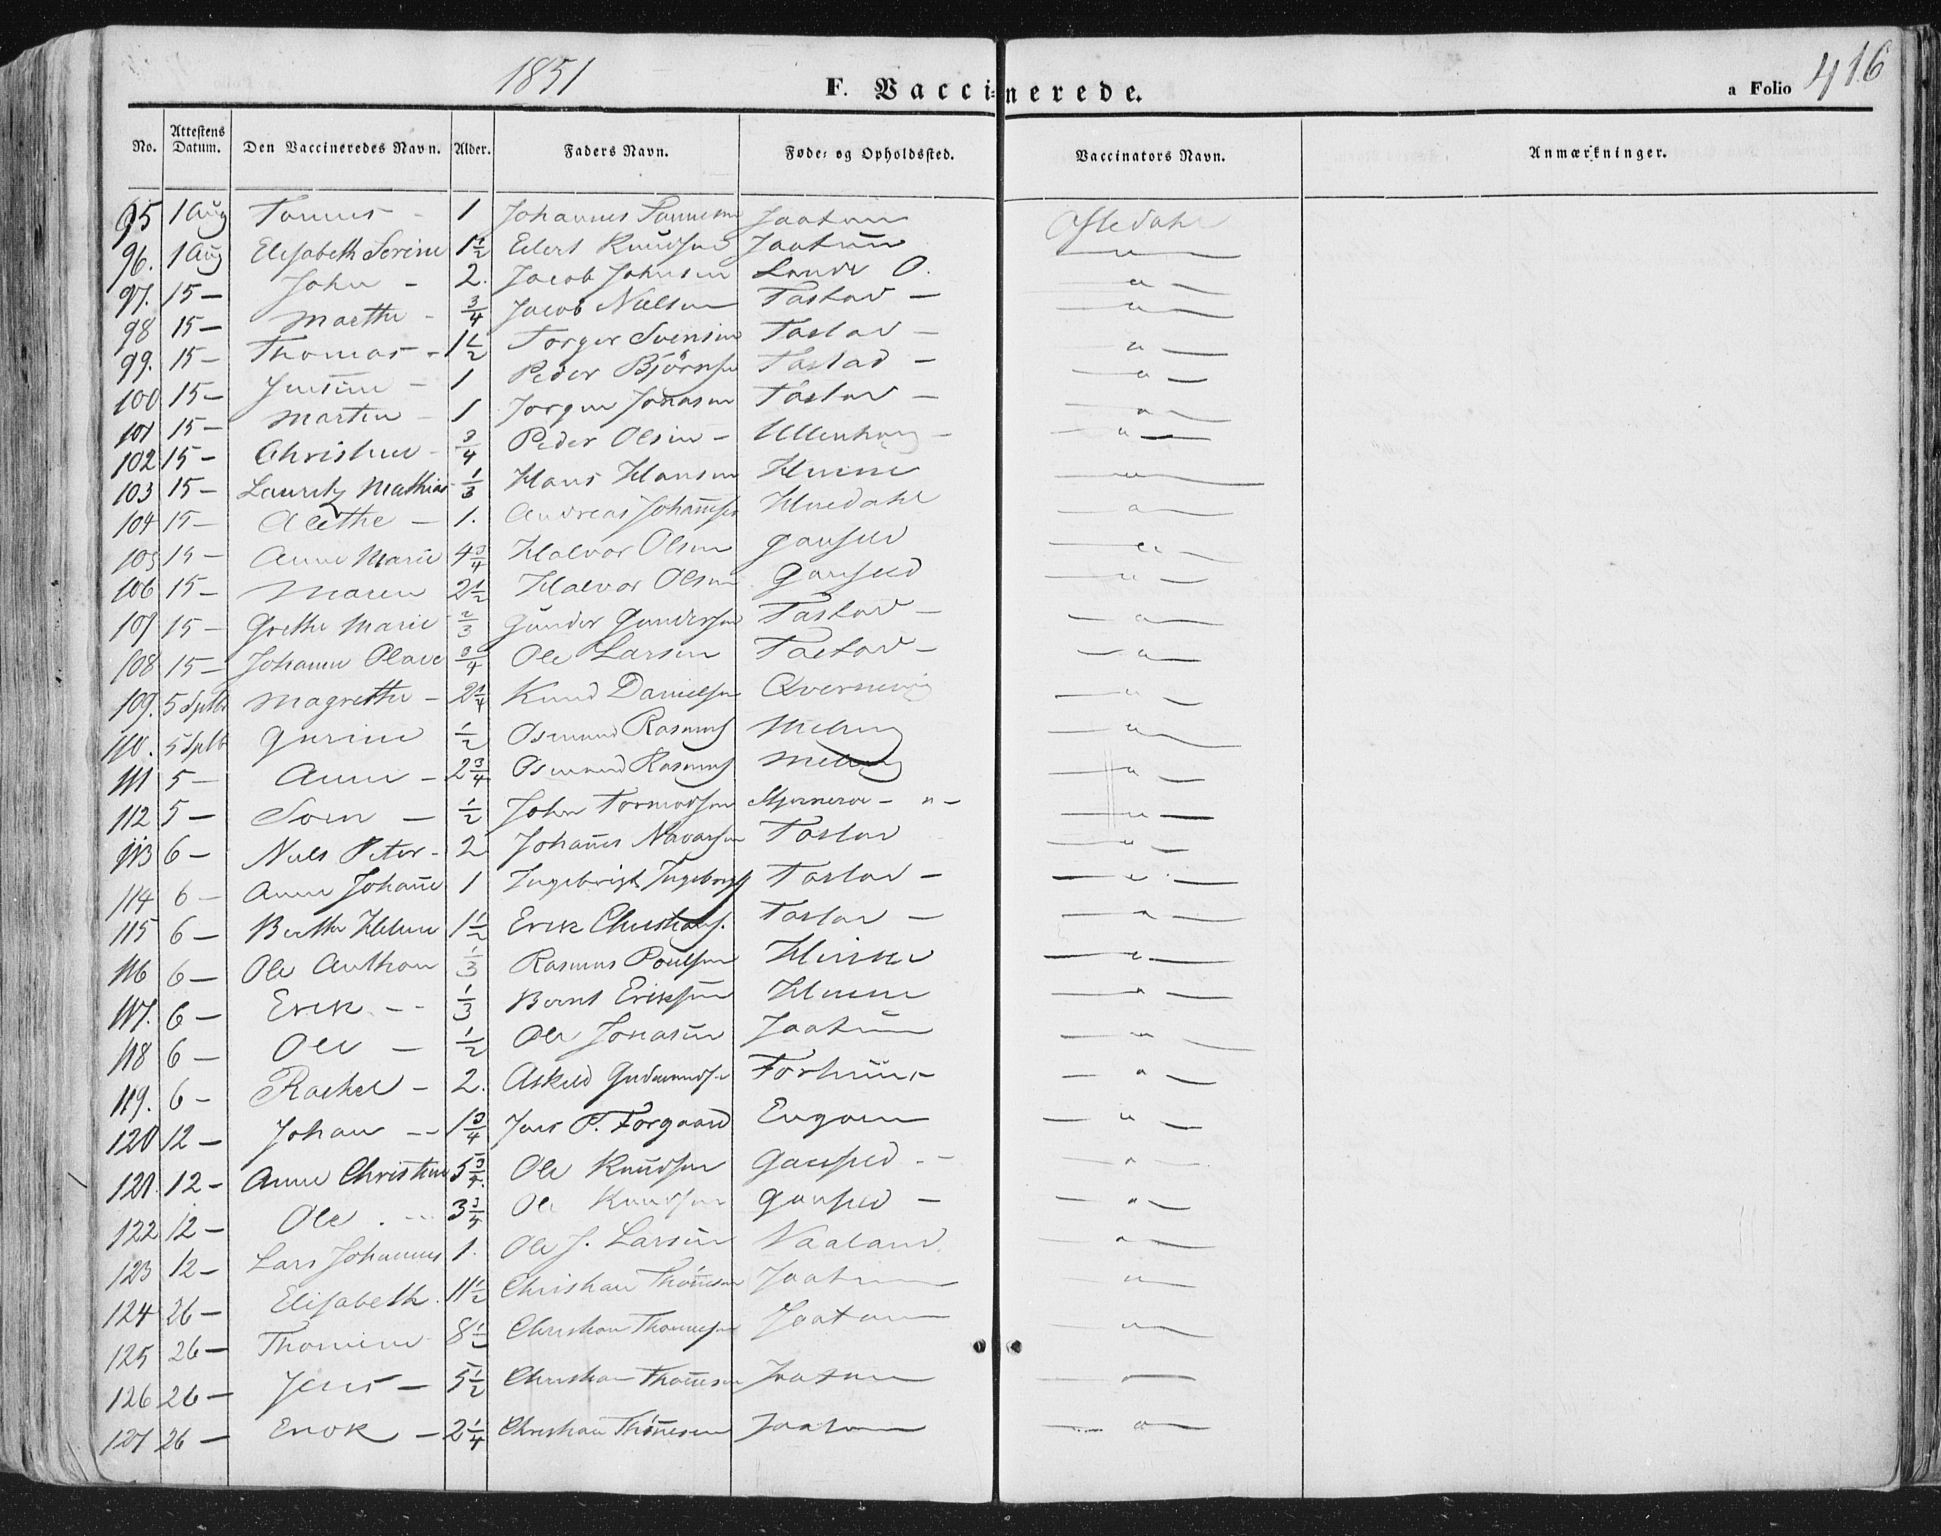 1851 F. Vaccinerede. a Folio 416
No. Attestens Datum. Den Vaccineredes Navn. Alder. Faders Navn. Føde- og Opholdssted. Vaccinators Navn. Anmærkninger.
95 1 Aug Tonnes - 1 Johannes Jaatun
96. 1 Aug Elisabeth Serine 1½ Eilert Knudsen Jaatun — " —
97. 15 — John - 2. Jacob Johnsen Lende O. — " —
98 15 — Marthe - ¾ Jacob Nielsen Tastad — — " —
99. 15 — Thomas - 1½ Torger Svensen Tastad — — " —
100 15 — Jensine - 1 Peder Bjørnsen Tastad — — " —
101 15 — Martin - 1 Jørgen Jonasen Tastad — — " —
102 15 — Christine - ¾ Peder Olsen - Ullenhaug — — " —
103 15 — Lauritz Mathias ⅓ Hans Hansen Hinne — " —
104 15 — Alethe — 1. Andreas Johannesen — " —
105 15 — Anne Marie 4¾ Halvor Olsen Gausled — " —
106 15 — Maren 2½ Halvor Olsen Gausled — " —
107 15 — Grethe Marie ⅔ Gunder Gundersen Tastad — — " —
108 15 — Johanne Olave ¾ Ole Larsen Tastad — — " —
109. 5 Septbr Magrethe - 2¼ Knud Danielsen Qvernevig — " —
110. 5 Septb Gurine ½ Osmund Rasmus — " —
111 5 — Anne - 2¾ Osmund Rasmus — " —
112 5 — Soren — ½ John Tormodsen — " —
113 6 — Niels Peter - 2 Johannes Tastad — " —
114 6 — Anne Johanne 1 Ingebrigt Ingebrigts Tastad — — " —
115 6 — Berthe Helene 1½ Erik Christians. Tastad — — " —
116 6 — Ole Anthon ⅓ Rasmus Poulsen Hinne — " —
117. 6 — Erik - - ⅓ Bernt Eriksen Hinne — " —
118 6 — Ole — ½ Ole Jonasen Jaatun — " —
119. 6 — Rachel - 2. Askild Gudmundsen Forhuus — " —
120 12 — Johan - - 1¾ Jens P. Torgaard Eugom — " —
121. 12 — Anne Christine 5¾ Ole Knudsen Gausled - - — " —
122 12 — Ole . — 3¾ Ole Knudsen Gausled — — " —
123 12 — Lars Johannes 1. Ole J. Larsen Vaaland — " —
124 26 — Elisabeth. 11½ Christian Thønnesen Jaatun — " —
125 26 — Thomine 8½ Christian Thønnesen Jaatun — " —
126 26 — Jens — 5½ Christian Thønnesen Jaatun — —
127 26 — Enok — 2¼ Christian Thønnesen Jaatun — " —